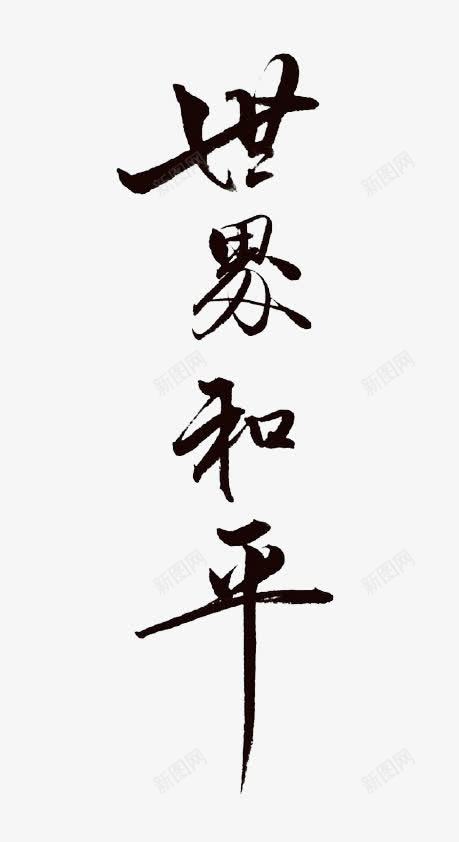 世界和平
新图网
新图网
新图网
新图网
新图网
新图网
新图网
新图网